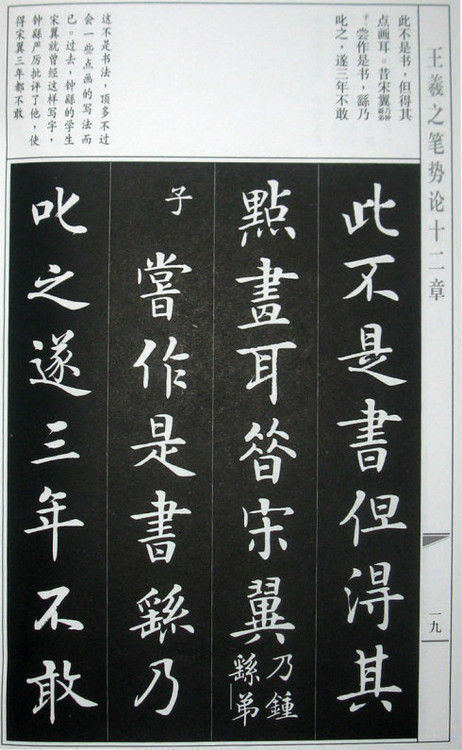 王羲之笔势论十二章
一九
此不是书,但得其
点画耳。昔宋翼乃钟繇弟
子,尝作是书,繇乃
叱之,遂三年不敢
这不是书法,顶多不过
会一些点画的写法而
已。过去,钟繇的学生
宋翼就曾经这样写字,
钟繇严厉批评了他,使
得宋翼三年都不敢
此不是書但淂其
點畫耳昔宋翼乃鍾繇弟
子嘗作是書繇乃
叱之遂三年不敢